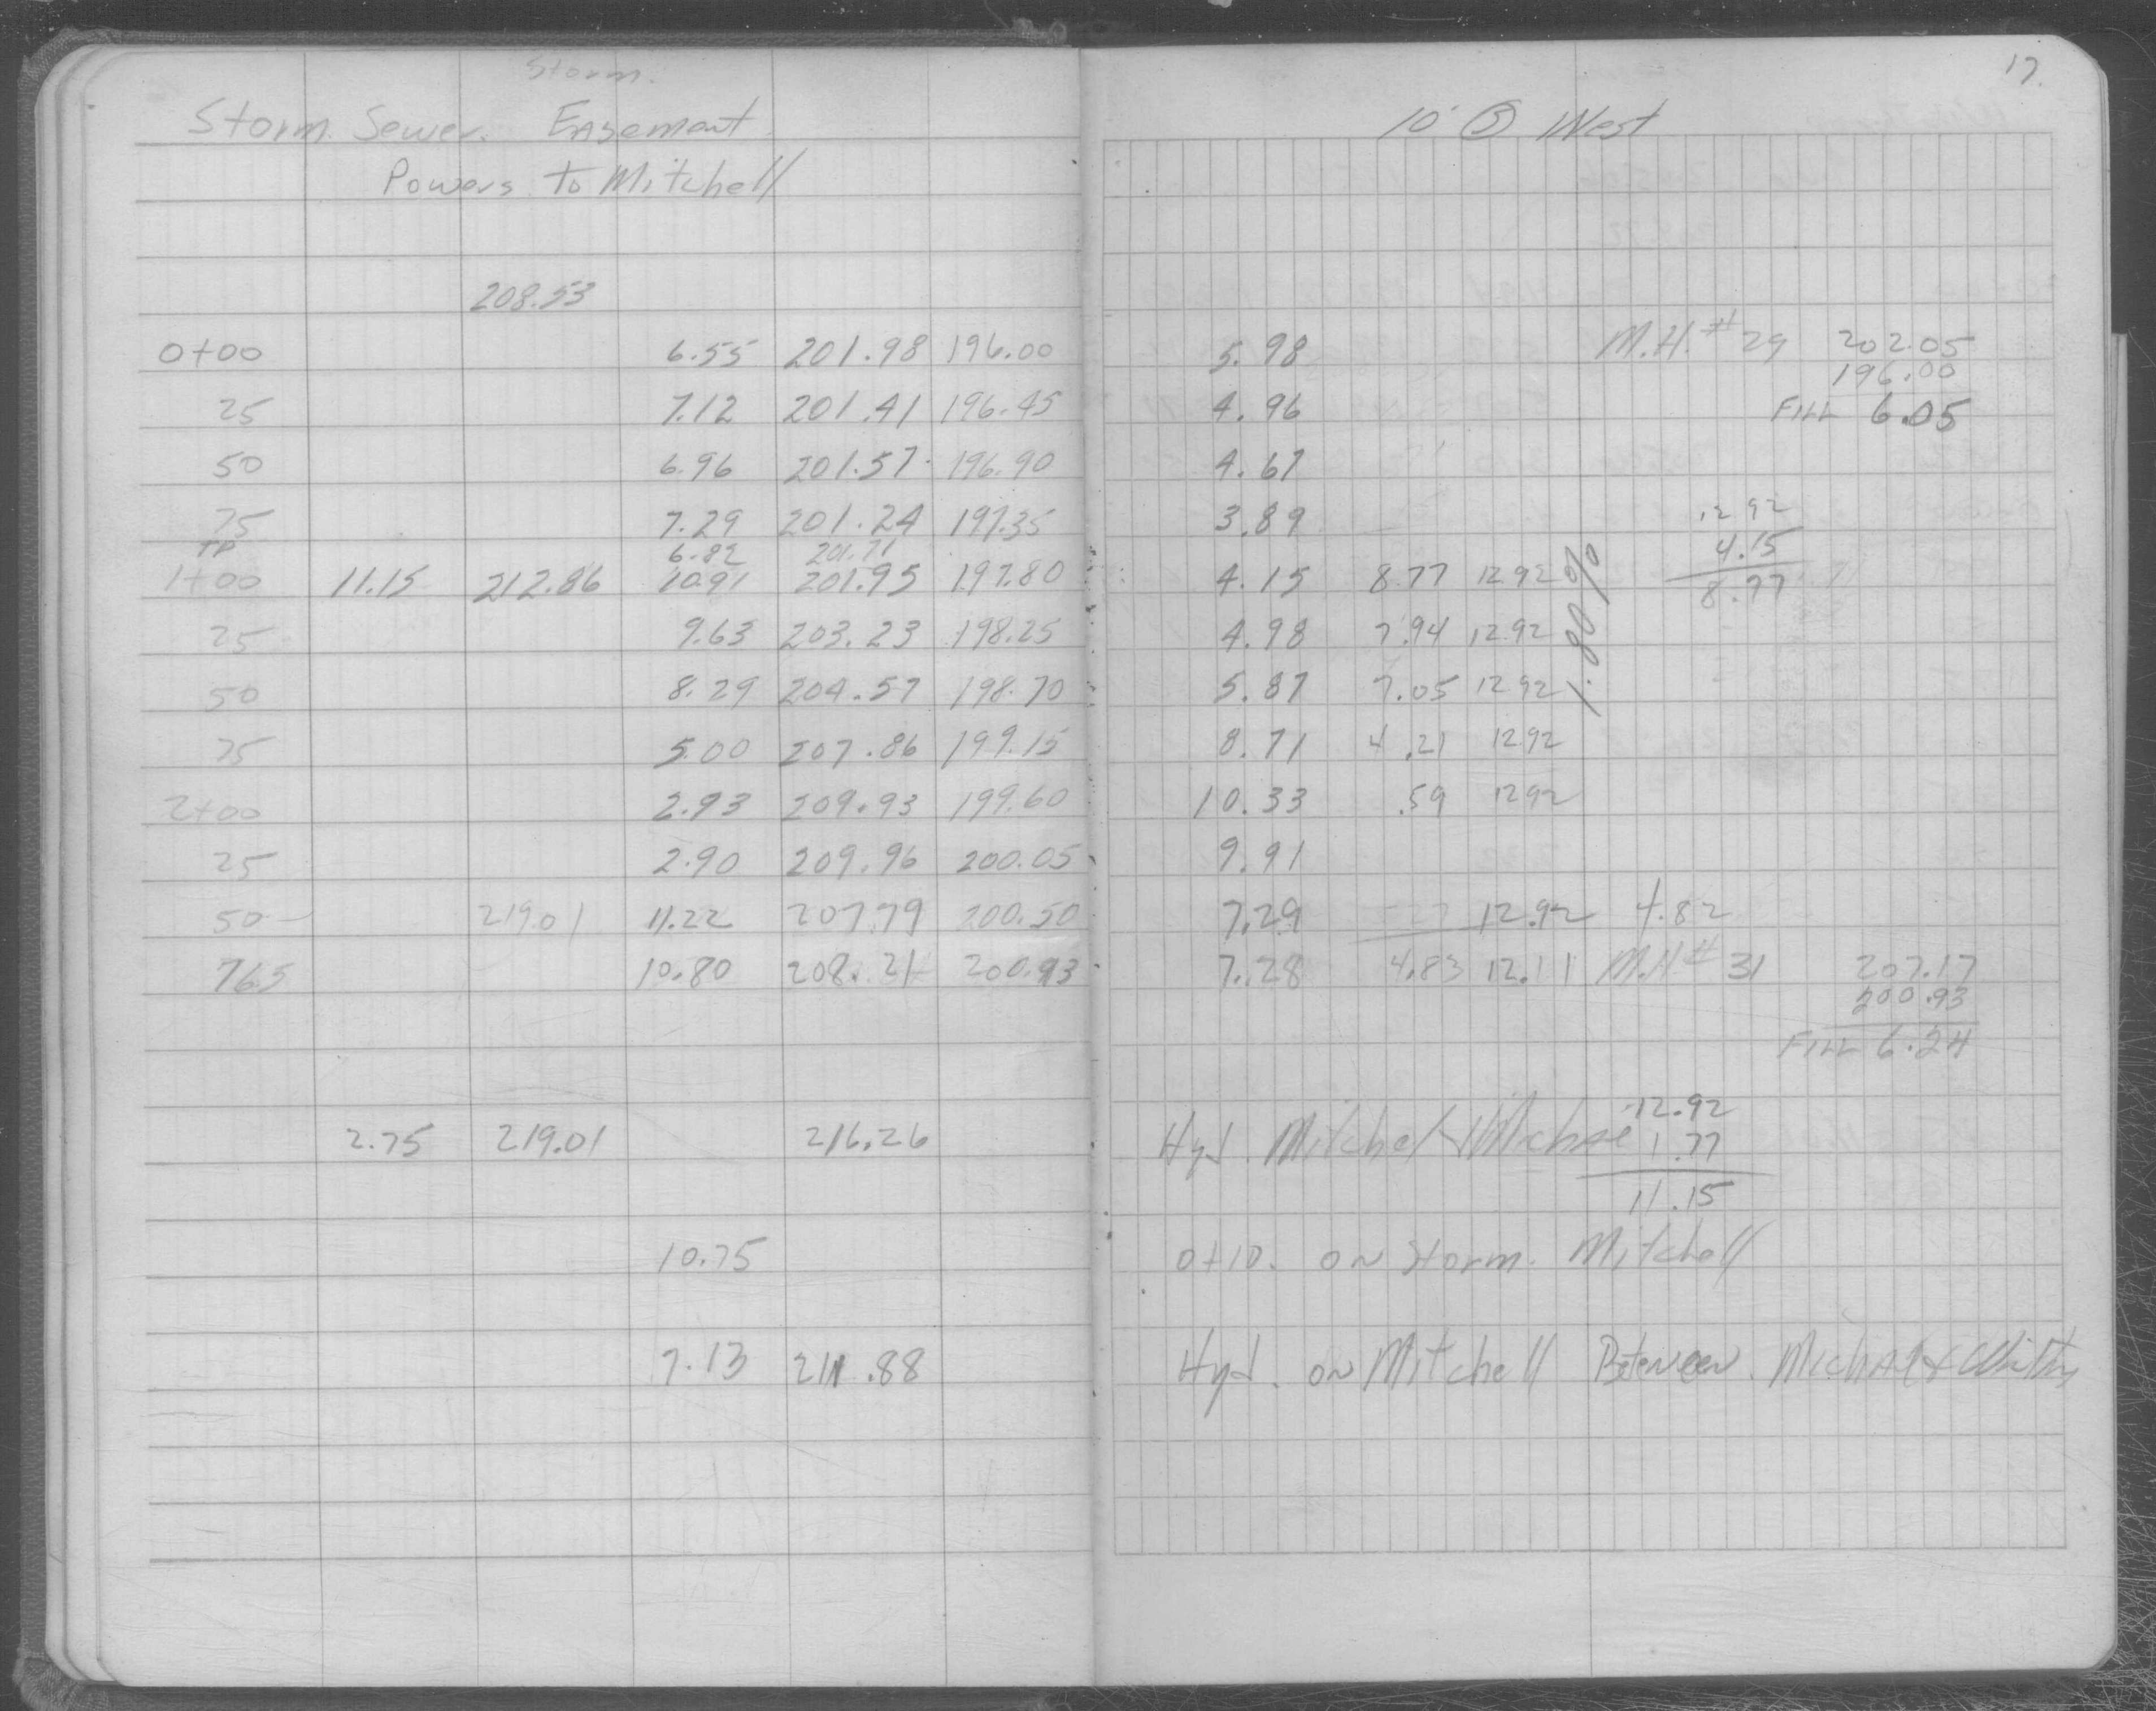 17.
Storm.
Storm. Sewer. Easement 10' Ⓢ West
Powers to Mitchell
208.53
0+00 6.55 201.98 196.00 5.98 M.H.# 29 202.05
196.00
25 7.12 201.41 196.45 4.96 FILL 6.05
50 6.96 201.57 196.90 4.67
75 7.29 201.24 197.35 3.89 12.92
TP 6.82 201.71 4.15
1+00 11.15 212.86 10.91 201.95 197.80 4.15 8.77 12.92 8.77
1.80%
25 9.63 203.23 198.25 4.98 7.94 12.92
50 8.29 204.57 198.70 5.87 7.05 12.92
75 5.00 207.86 199.15 8.71 4.21 12.92
2+00 2.93 209.93 199.60 10.33 .59 12.92
25 2.90 209.96 200.05 9.91
50 219.01 11.22 207.79 200.50 7.29 12.92 4.82
76.5 10.80 208.21 200.93 7.28 4.83 12.11 M.H.# 31 207.17
200.93
FILL 6.24
12.92
2.75 219.01 216.26 Hyd. Mitchel & Michae 1.77
11.15
10.75 0+10. on Storm. Mitchell
7.13 211.88 Hyd. on Mitchell Between. Michael &